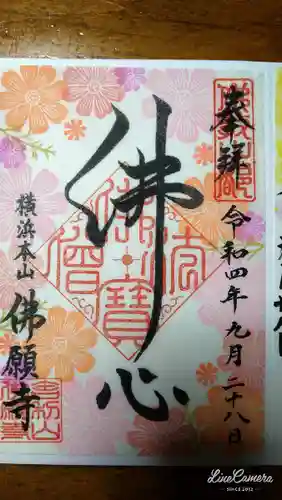 奉拜
令和四年九月二十八日
佛心
横浜本山
佛願寺
佛法僧寶
LineCamera